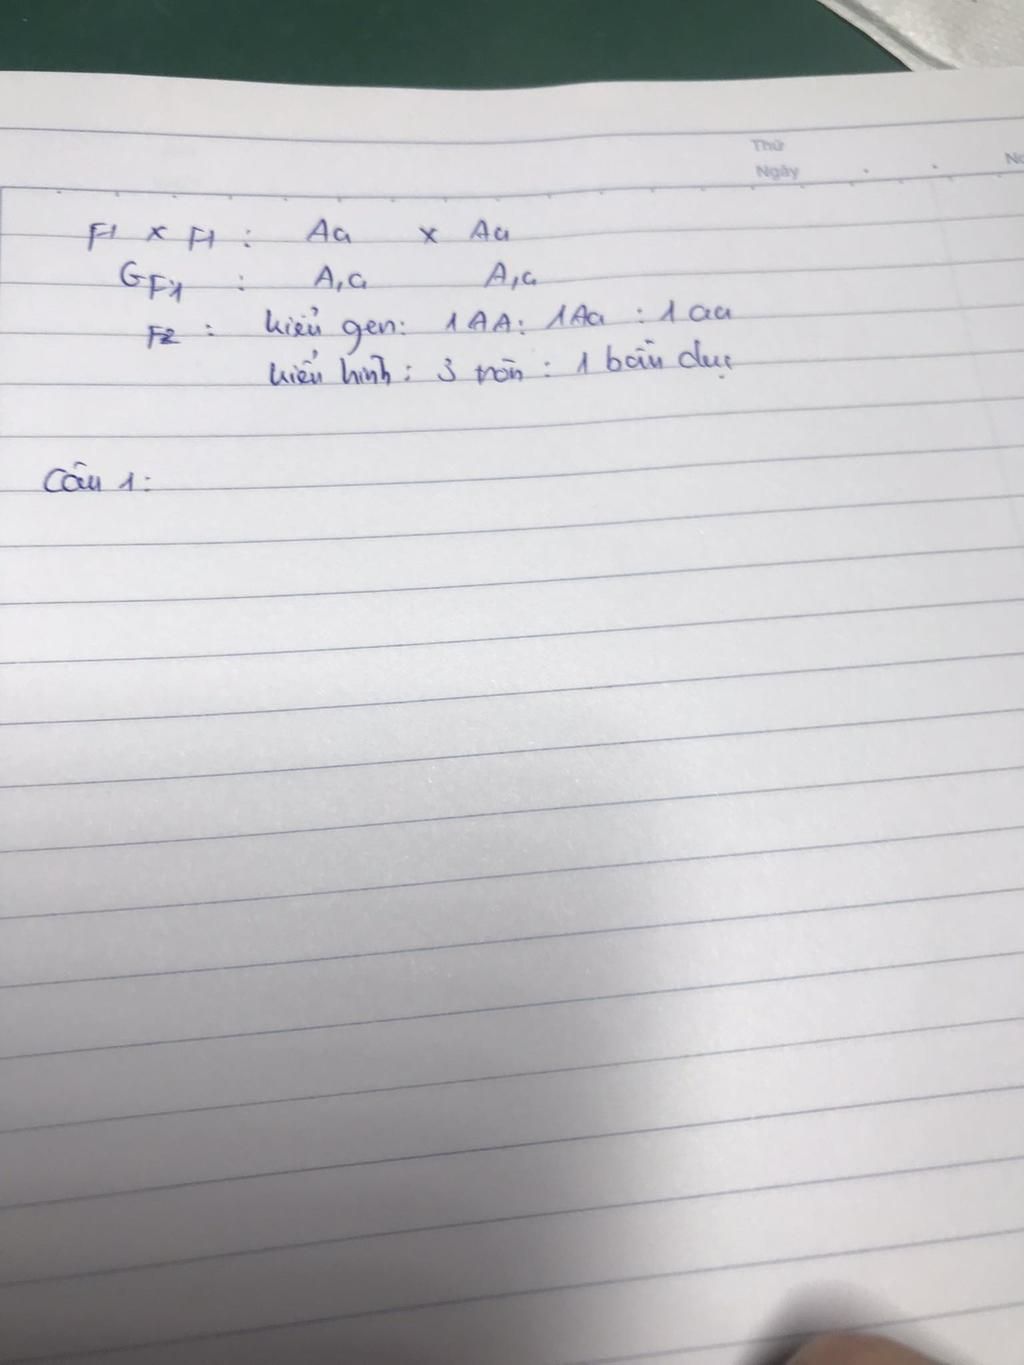 Thứ
Ngày
No
F1 x F1 : Aa x Aa
GF1 : A,a A,a
F2 : kiểu gen: 1AA: 1Aa : 1 aa
kiểu hình : 3 tròn : 1 bầu dục
Câu 1: